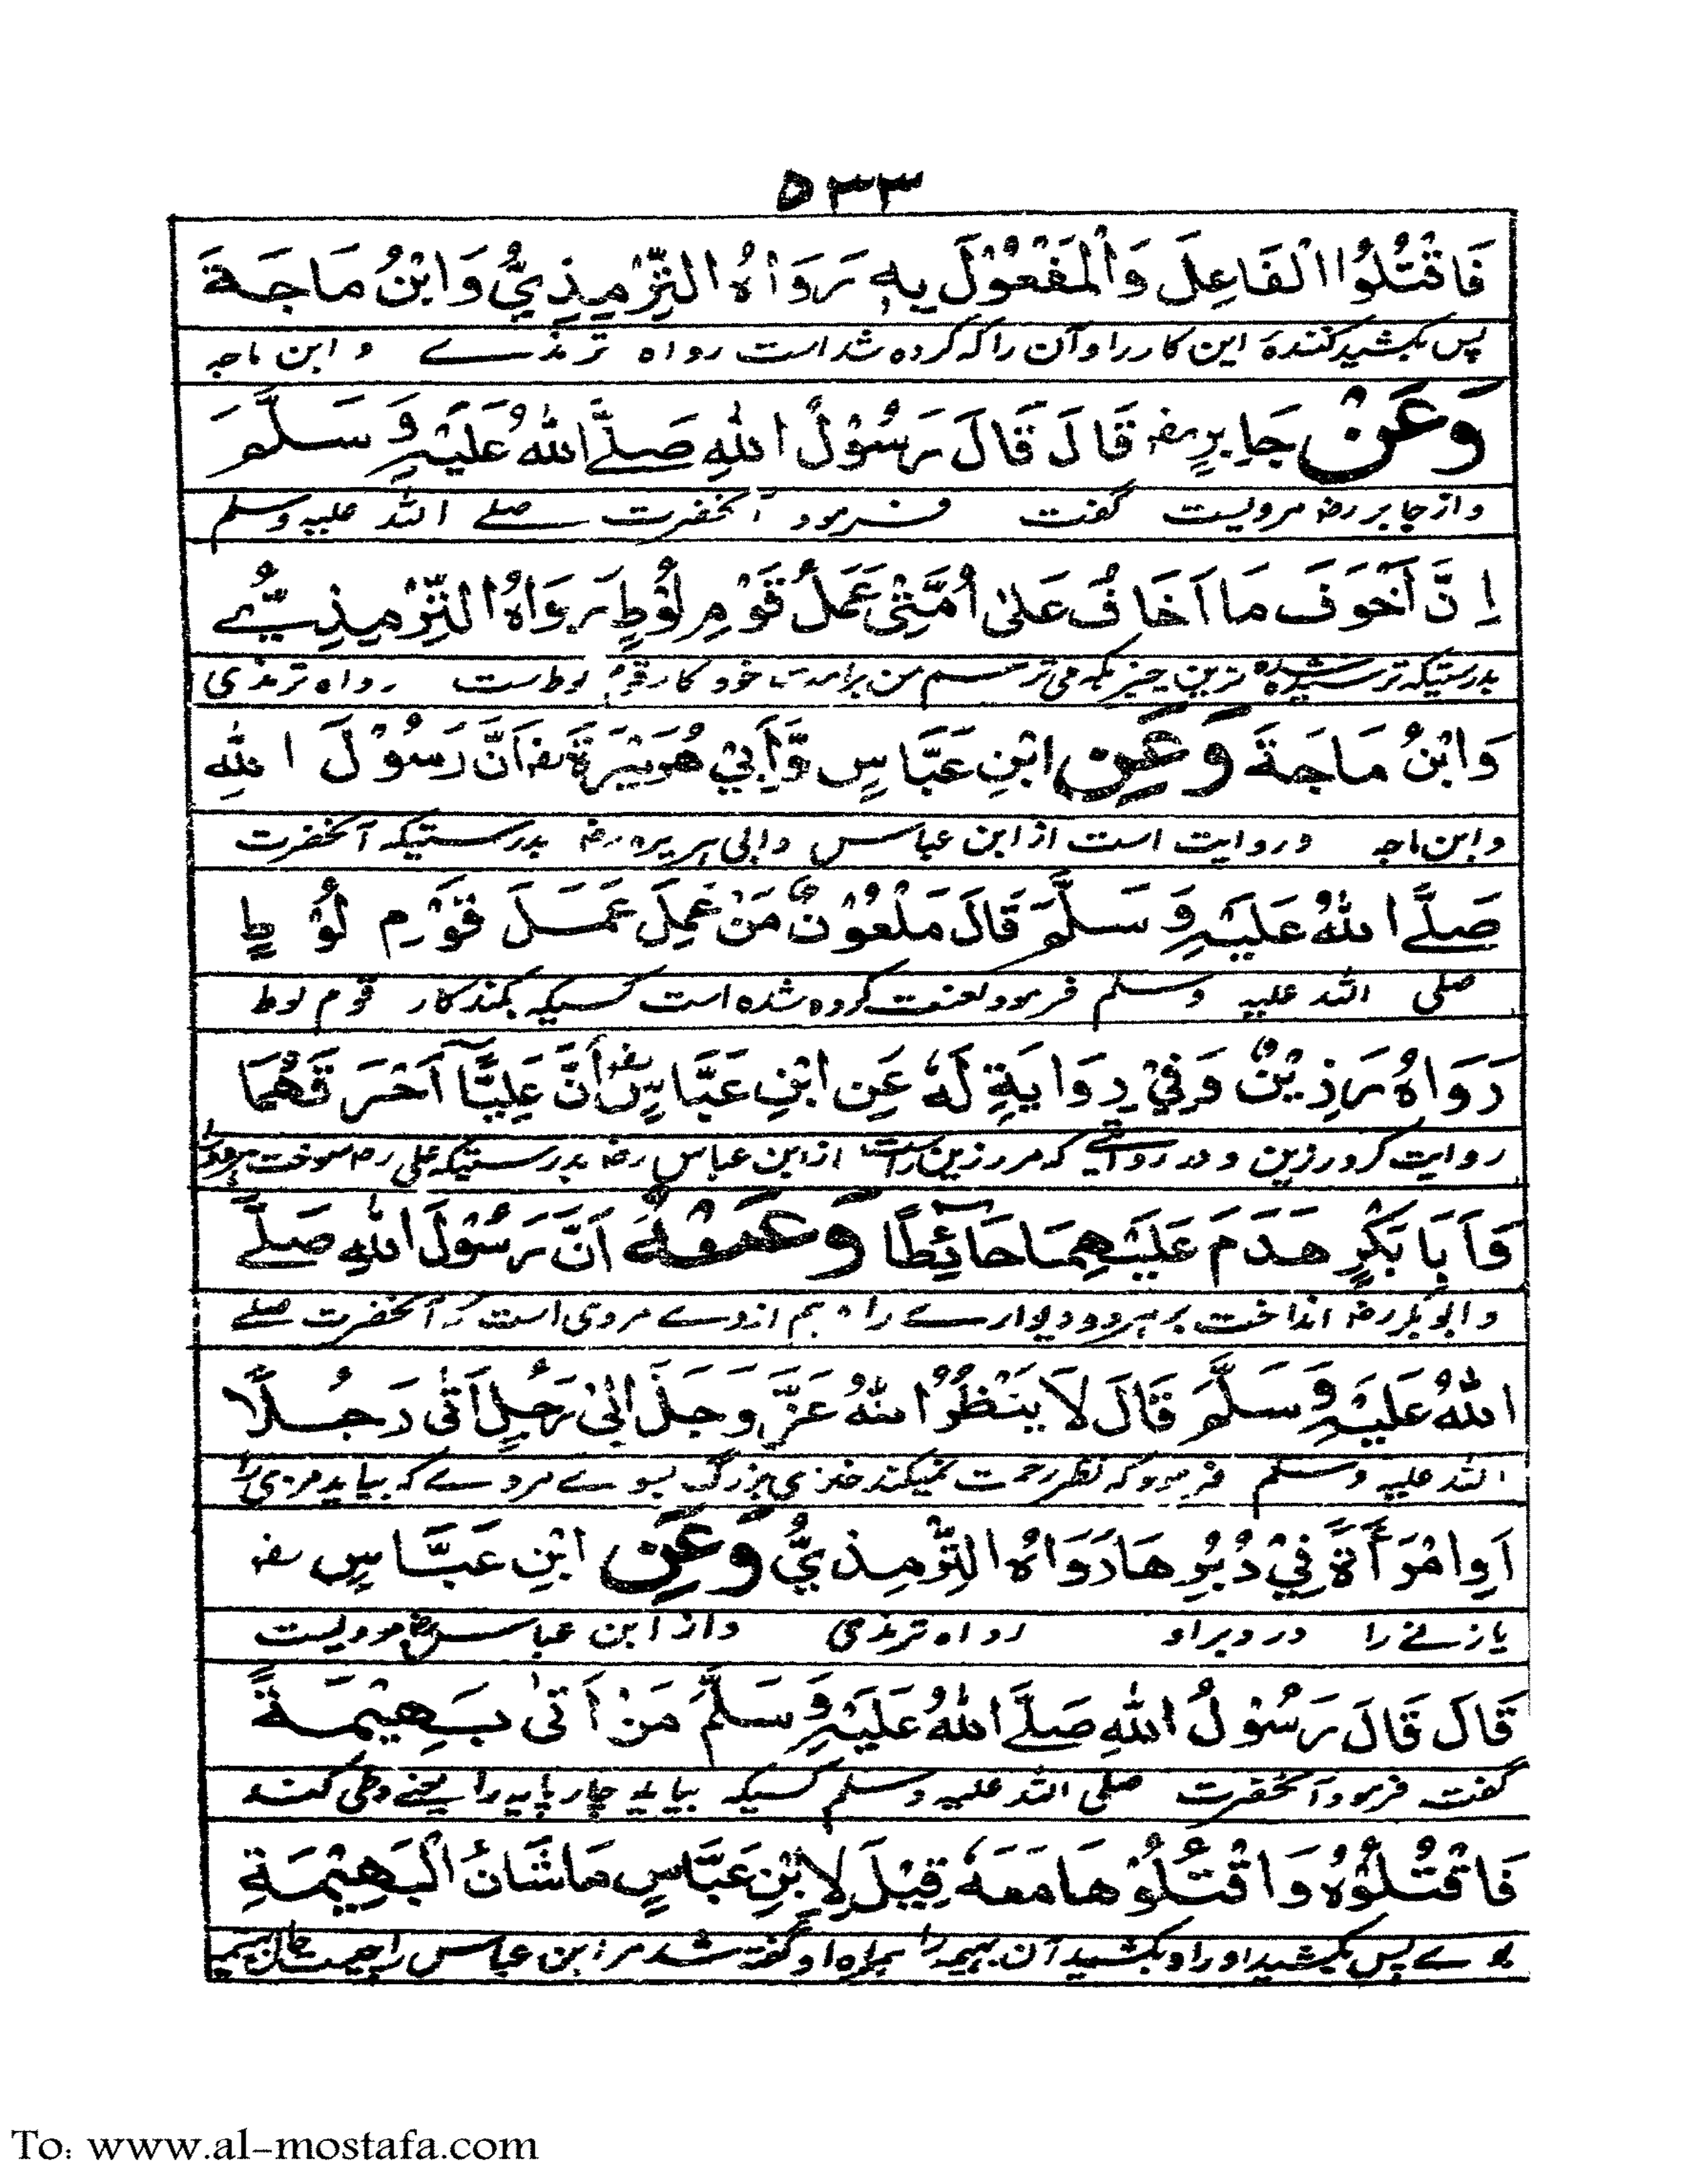 ٥٣٣
فَاقْتُلُوا الْفَاعِلَ وَالْمَفْعُوْلَ بِهٖ رَوَاهُ التِّرْمِذِيُّ وَابْنُ مَاجَةَ
پس بکشید کنندهٔ این کار را و آن را که کرده شد است رواه ترمذے و ابن ماجه
وَعَنْ جَابِرٍ رضه قَالَ قَالَ رَسُوْلُ اللّٰهِ صَلَّے اللّٰهُ عَلَيْهِ وَسَلَّمَ
و از جابر رضه مرویست گفت فرمود آنحضرت صلے الله علیه وسلم
اِنَّ اَخْوَفَ مَا اَخَافُ عَلٰى اُمَّتِيْ عَمَلُ قَوْمِ لُوْطٍ رَوَاهُ التِّرْمِذِيُّ
بدرستیکه ترسیده شده ترین چیزیکه می ترسم من بر امت خود کار قوم لوطست رواه ترمذی
وَابْنُ مَاجَةَ وَعَنِ ابْنِ عَبَّاسٍ وَّاَبِيْ هُرَيْرَةَ رضه اَنَّ رَسُوْلَ اللّٰهِ
وابن ماجه و روایت است از ابن عباس وابی هریره رضه بدرستیکه آنحضرت
صَلَّے اللّٰهُ عَلَيْهِ وَسَلَّمَ قَالَ مَلْعُوْنٌ مَنْ عَمِلَ عَمَلَ قَوْمِ لُوْطٍ
صلی الله علیه وسلم فرمود لعنت کرده شده است کسیکه بکند کار قوم لوط
رَوَاهُ رَزِيْنٌ وَفِيْ رِوَايَةٍ لَهٗ عَنِ ابْنِ عَبَّاسٍ رضه اَنَّ عَلِيًّا اَحْرَقَهُمَا
روایت کرد رزین و در روایتے که مر رزین راست از ابن عباس رضه بدرستیکه علی رضه سوخت هردو را
وَاَبَا بَكْرٍ هَدَمَ عَلَيْهِمَا حَائِطًا وَعَنْهُ اَنَّ رَسُوْلَ اللّٰهِ صَلَّے
و ابوبکر رضه انداخت بر هر دو دیوارے را و هم از وے مروی است که آنحضرت صلے
اللّٰهُ عَلَيْهِ وَسَلَّمَ قَالَ لَا يَنْظُرُ اللّٰهُ عَزَّ وَجَلَّ اِلٰى رَجُلٍ اَتٰى رَجُلًا
الله علیه وسلم فرمود که نظر رحمت نمیکند خدای بزرگ بسوے مردے که بیاید مردی را
اَوِامْرَأَةً فِيْ دُبُرِهَا رَوَاهُ التِّرْمِذِيُّ وَعَنِ ابْنِ عَبَّاسٍ رضه
یا زنے را در دبر او رواه ترمذی و از ابن عباس رضه مرویست
قَالَ قَالَ رَسُوْلُ اللّٰهِ صَلَّے اللّٰهُ عَلَيْهِ وَسَلَّمَ مَنْ اَتٰى بَهِيْمَةً
گفت فرمود آنحضرت صلی الله علیه وسلم کسیکه بیاید چارپایه را یعنے وطی کند
فَاقْتُلُوْهُ وَاقْتُلُوْهَا مَعَهٗ قِيْلَ لِابْنِ عَبَّاسٍ مَا شَانُ الْبَهِيْمَةِ
بوے پس بکشید او را و بکشید آن بهیمه را همراه او گفته شد مر ابن عباس را چیست حال بهیمه
To: www.al-mostafa.com